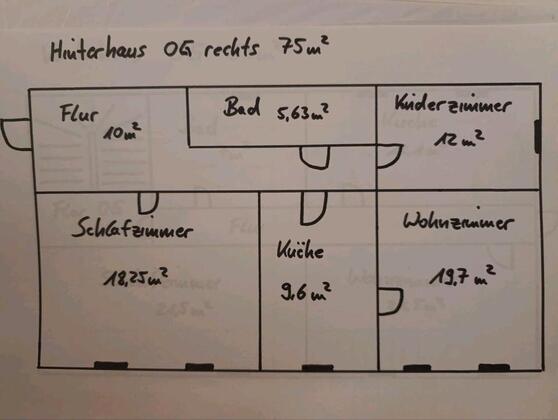 Hinterhaus OG rechts 75m²
Flur
10m²
Bad 5,63m²
Kinderzimmer
12 m²
Schlafzimmer
18,25m²
Küche
9,6 m²
Wohnzimmer
19,7 m²